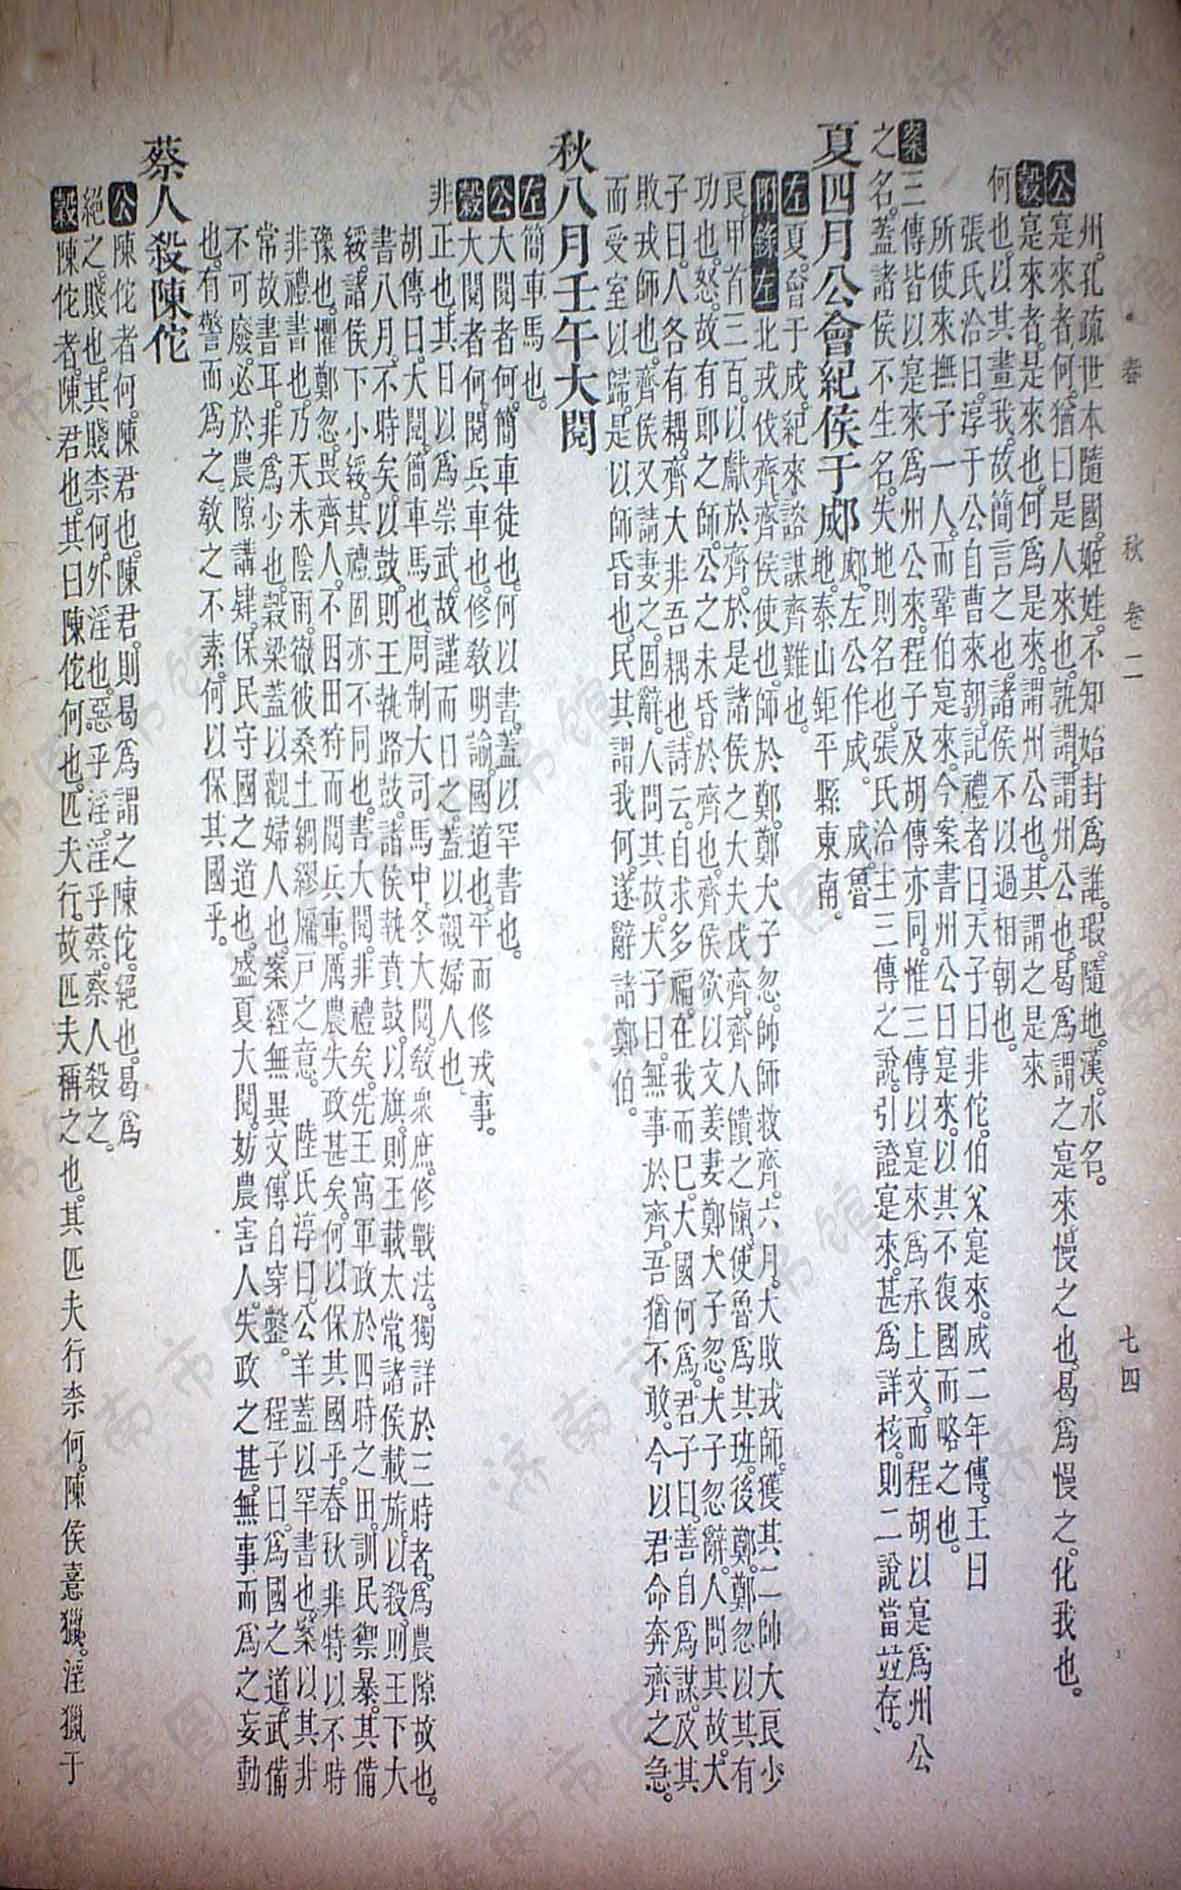 春秋 卷二 七四
州。孔疏世本隨國。姬姓。不知始封爲誰。瑕。隨地。漢。水名。
公寔來者何。猶曰是人來也。孰謂。謂州公也。曷爲謂之寔來。慢之也。曷爲慢之。化我也。
穀寔來者。是來也。何爲是來。謂州公也。其謂之是來
何也。以其畫我。故簡言之也。諸侯不以過相朝也。
張氏洽曰。淳于公自曹來朝。記禮者曰。天子曰非佗。伯父寔來。成二年傳。王曰
所使來撫予一人。而鞏伯寔來。今案書州公曰寔來。以其不復國而略之也。
案三傳皆以寔來爲州公來。程子及胡傳亦同。惟三傳以寔來爲承上文。而程胡以寔爲州公
之名。蓋諸侯不生名。失地則名也。張氏洽主三傳之說。引證寔來。甚爲詳核。則二說當並存。
夏四月公會紀侯于郕 郕。左公作成。 成。魯
地。泰山鉅平縣東南。
左夏。會于成。紀來諮謀齊難也。
附錄左北戎伐齊。齊侯使也。師於鄭。鄭大子忽。帥師救齊。六月。大敗戎師。獲其二帥大良少
良甲首三百。以獻於齊。於是諸侯之大夫戍齊。齊人饋之餼。使魯爲其班。後鄭。鄭忽以其有
功也。怒。故有郎之師。公之未昏於齊也。齊侯欲以文姜妻鄭大子忽。大子忽辭。人問其故。大
子曰。人各有耦。齊大非吾耦也。詩云。自求多福。在我而已。大國何爲。君子曰。善自爲謀。及其
敗戎師也。齊侯又請妻之。固辭。人問其故。大子曰。無事於齊。吾猶不敢。今以君命奔齊之急。
而受室以歸。是以師昏也。民其謂我何。遂辭諸鄭伯。
秋八月壬午大閱
左簡車馬也。
公大閱者何。簡車徒也。何以書。蓋以罕書也。
穀大閱者何。閱兵車也。修教明諭。國道也。平而修戎事。
非正也。其日以爲崇武。故謹而日之。蓋以觀婦人也。
胡傳曰。大閱。簡車馬也。周制大司馬中冬大閱。教衆庶。修戰法。獨詳於三時者。爲農隙故也。
書八月。不時矣。以鼓。則王執路鼓。諸侯執賁鼓。以旗。則王載太常。諸侯載旂。以殺。則王下大
綏。諸侯下小綏。其禮固亦不同也。書大閱。非禮矣。先王寓軍政於四時之田。訓民禦暴。其備
豫也。懼鄭忽。畏齊人。不因田狩而閱兵車。厲農失政甚矣。何以保其國乎。春秋非特以不時
非禮書也。乃天未陰雨。徹彼桑土綢繆牖戶之意。 陸氏淳曰。公羊蓋以罕書也。案以其非
常故書耳。非爲少也。穀梁蓋以觀婦人也。案經無異文。傳自穿鑿。 程子曰。爲國之道。武備
不可廢。必於農隙講肄。保民守國之道也。盛夏大閱。妨農害人。失政之甚。無事而爲之妄動
也。有警而爲之。教之不素。何以保其國乎。
蔡人殺陳佗
公陳佗者何。陳君也。陳君。則曷爲謂之陳佗。絕也。曷爲
絕之。賤也。其賤柰何。外淫也。惡乎淫。淫乎蔡。蔡人殺之。
穀陳佗者。陳君也。其曰陳佗何也。匹夫行。故匹夫稱之也。其匹夫行柰何。陳侯憙獵。淫獵于